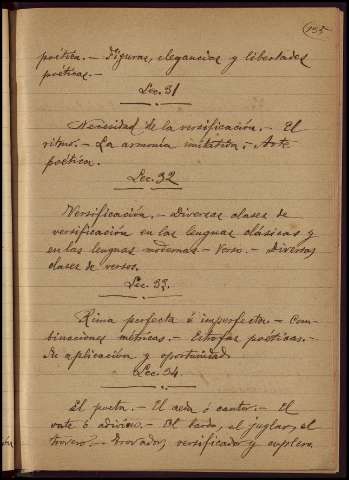 155
poética.- Figuras, elegancias y libertades
poéticas.-
Lec. 31
Necesidad de la versificación.- El
ritmo.- La armonía imitativa.- Arte
poética.
Lec. 32
Versificación.- Diversas clases de
versificación en las lenguas clásicas y
en las lenguas modernas.- Verso.- Diversas
clases de versos.
Lec. 33.
Rima perfecta é imperfecta.- Com-
binaciones métricas.- Estrofas poéticas.-
Su aplicación y oportunidad.
Lec. 34
El poeta.- El aeda ó cantor.- El
vate ó adivino.- El bardo, el juglar, el
trovero.- Trovador, versificador y coplero.